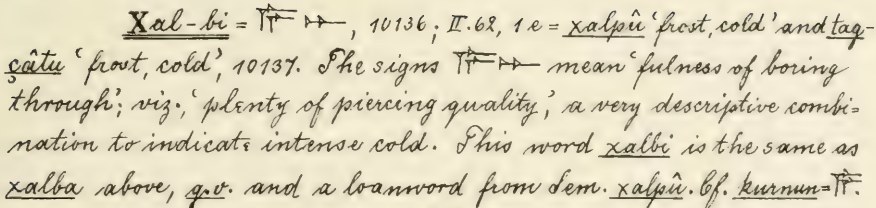 Xal-bi = 𒄬, 10136; II.62, 1e = xalpû 'frost, cold' and tag-
çâtu 'frost, cold', 10137. The signs 𒄬 mean 'fulness of boring
through'; viz., 'plenty of piercing quality', a very descriptive combi=
nation to indicate intense cold. This word xalbi is the same as
xalba above, q.v. and a loanword from Sem. xalpû. Cf. kurnun=